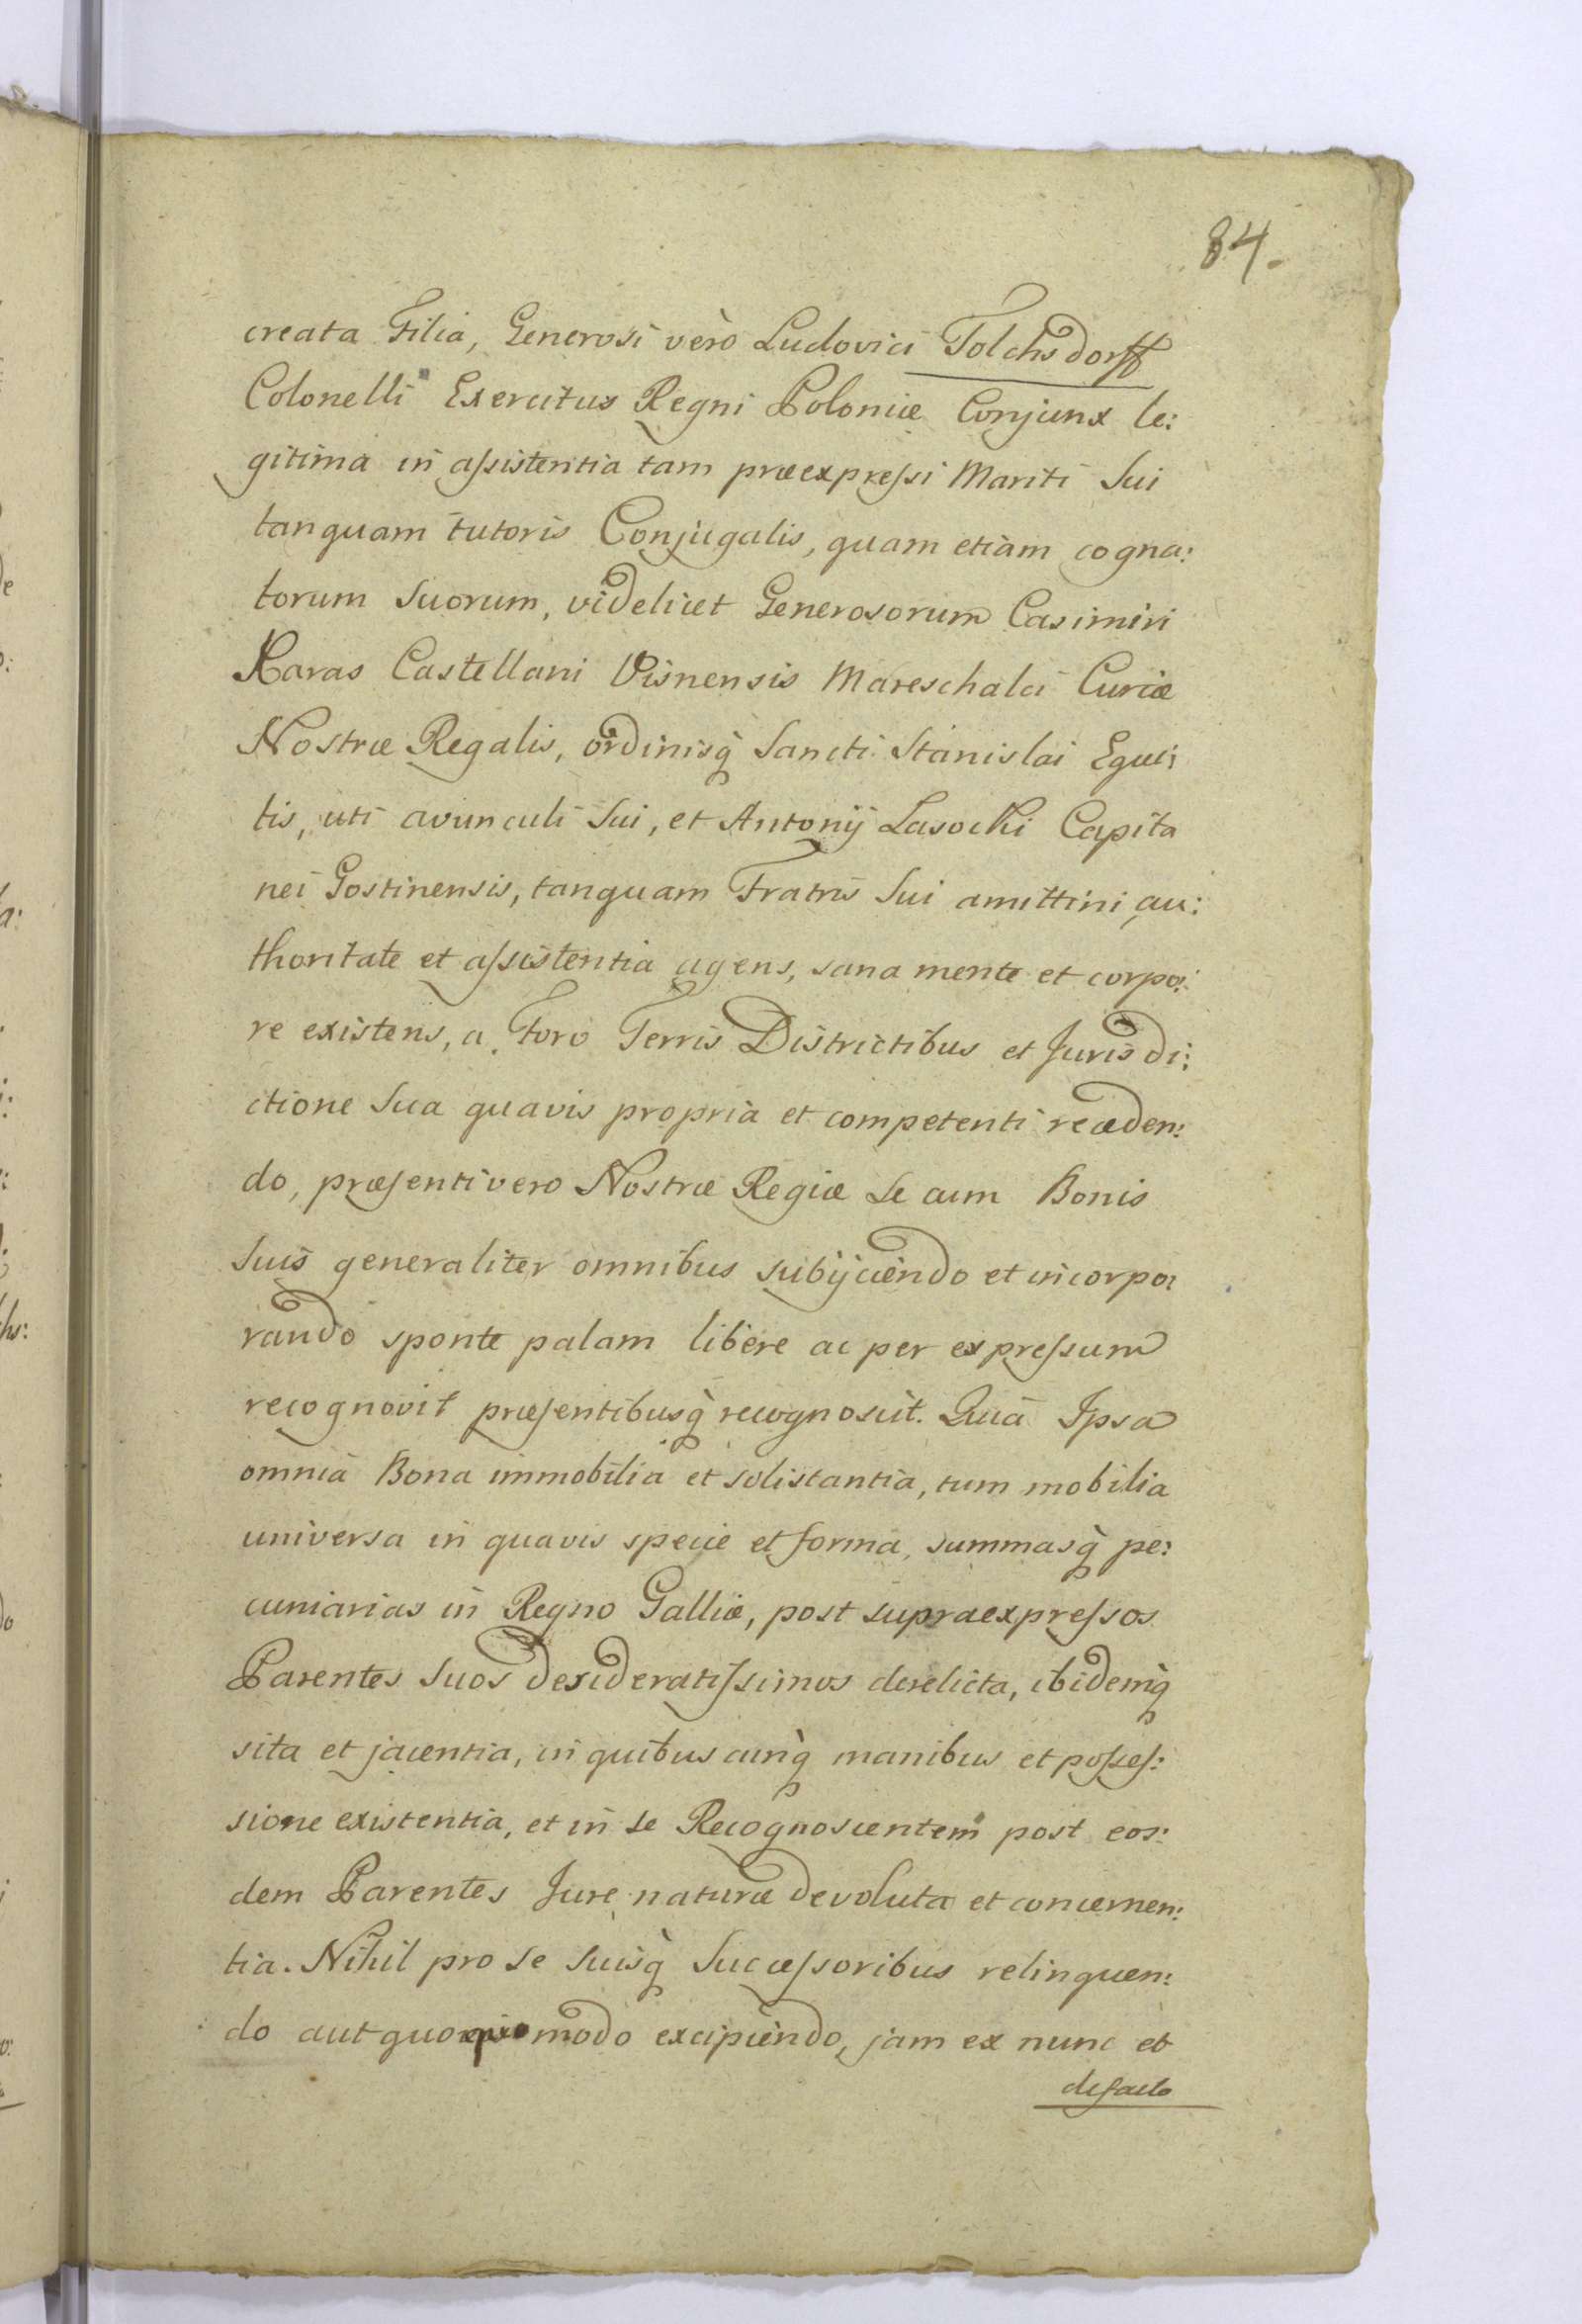 84.
creata Filia, Generosi vèro Ludovici Tolchsdorff
Colonelli Exercitus Regni Poloniæ Conjunx le:
gitima in assistentia tam præexpressi Mariti Sui
tanquam tutoris Conjugalis, quam etiam cogna:
torum Suorum, videlicet Generosorum Casimiri
Karas Castellani Visnensis Mareschalci Curiæ
Nostræ Regalis, ordinisq̀ Sancti Stanislai Equi:
tis, uti avunculi Sui, et Antonij Lasocki Capita
nei Gostinensis, tanquam Fratris Sui amittini au:
thoritate et assistentia agens, sana mente et corpo:
re existens, a Foro Terris Districtibus et Jurisdi:
ctione Sua quavis propria et competenti recæden:
do, præsenti vero Nostræ Regiæ Se cum Bonis
Suis generaliter omnibus subijciendo et incorpo:
rando sponte palam libere ac per expressum
recognovit præsentibusq̀ recognoscit. Quia Ipsa
omnia Bona immobilia et solistantia, tum mobilia
universa in quavis specie et forma, summasq̀ pe:
cuniarias in Regno Galliæ, post supraexpressos
Parentes Suos desideratissimos derelicta, ibidemq̀
sita et jacentia, in quibus cunq̀ manibus et posses:
sione existentia, et in Se Recognoscentem post eos:
dem Parentes Jure naturæ devoluta et concernen:
tia. Nihil pro Se Suisq̀ Succæssoribus relinquen:
do aut quoquomodo excipiendo, jam ex nunc et
defacto